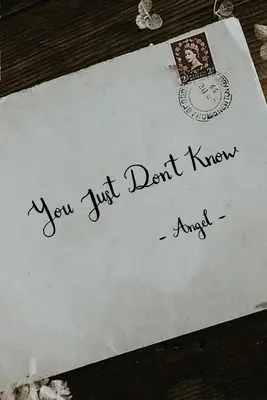 You Just Don't Know
- Angel -